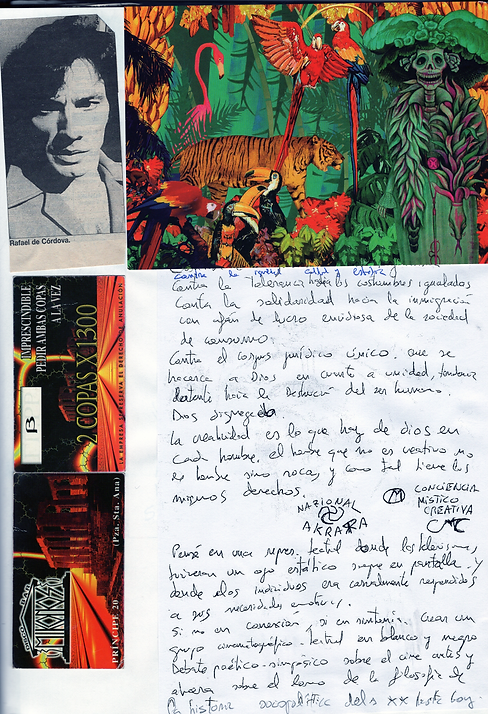 Rafael de Córdova.
IMPRESCINDIBLE
PEDIR AMBAS COPAS
A LA VEZ
2 COPAS X 1300
LA EMPRESA SE RESERVA EL DERECHO DE ANULACIÓN
B
PRÍNCIPE 20 (Pza. Sta. Ana)
Contra la tolerancia hacia las costumbres igualadas
Contra la solidaridad hacia la inmigración
con afán de lucro envidiosa de la sociedad
de consumo.
Contra el corpus jurídico único. que se
hacerca a Dios en cuanto a unidad,
hacia la destrucción del ser humano.
Dios disgregado.
La creatividad es lo que hay de dios en
cada hombre. el hombre que no es creativo no
es hombre sino roca, y como tal tiene los
mismos derechos.
NAZIONAL
AKRATA
M CONCIENCIA
MÍSTICO
CREATIVA
CMC
Pense en una repres. textil donde
tuvieran un ojo estático en pantalla y
donde los individuos eran
a sus necesidades
si no en conexion, si en sintonia. Crear un
grupo cinematográfico-textual en blanco y negro
Debate poético sobre el cine arte y
ahora sobre el de la filosofía de
la historia sociopolítica del s XX hasta hoy.